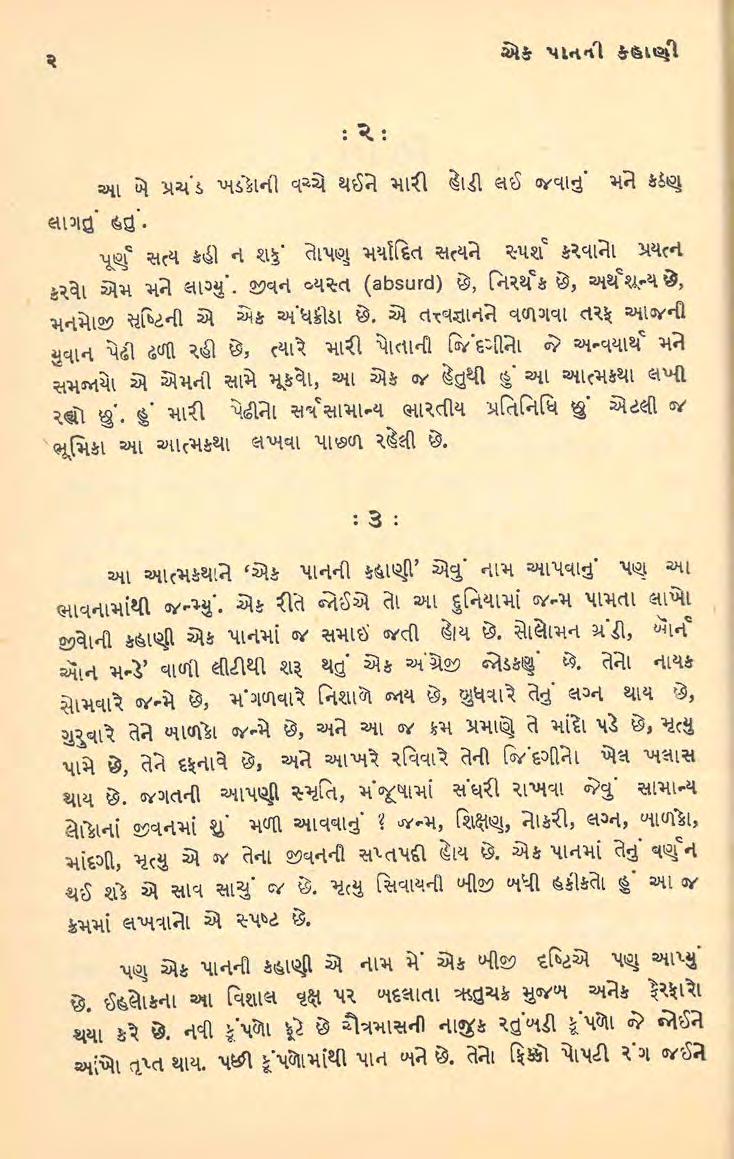 ૨
એક પાનની કહાણી
: ૨ :
આ બે પ્રચંડ ખડકોની વચ્ચે થઈને મારી હોડી લઈ જવાનું મને કઠણ
લાગતું હતું.
પૂર્ણ સત્ય કહી ન શકું તોપણ મર્યાદિત સત્યને સ્પર્શ કરવાનો પ્રયત્ન
કરવો એમ મને લાગ્યું. જીવન વ્યસ્ત (absurd) છે, નિરર્થક છે, અર્થશૂન્ય છે,
મનમોજી સૃષ્ટિની એ એક અંધક્રીડા છે. એ તત્ત્વજ્ઞાનને વળગવા તરફ આજની
યુવાન પેઢી ઢળી રહી છે, ત્યારે મારી પોતાની જિંદગીનો જે અન્વયાર્થ મને
સમજાયો એ એમની સામે મૂકવો, આ એક જ હેતુથી હું આ આત્મકથા લખી
રહ્યો છું. હું મારી પેઢીનો સર્વસામાન્ય ભારતીય પ્રતિનિધિ છું એટલી જ
ભૂમિકા આ આત્મકથા લખવા પાછળ રહેલી છે.
: ૩ :
આ આત્મકથાને ‘એક પાનની કહાણી’ એવું નામ આપવાનું પણ આ
ભાવનામાંથી જન્મ્યું. એક રીતે જોઈએ તો આ દુનિયામાં જન્મ પામતા લાખો
જીવોની કહાણી એક પાનમાં જ સમાઈ જતી હોય છે. સોલોમન ગ્રંડી, બૉર્ન
ઑન મન્ડે’ વાળી લીટીથી શરૂ થતું એક અંગ્રેજી જોડકણું છે. તેનો નાયક
સોમવારે જન્મે છે, મંગળવારે નિશાળે જાય છે, બુધવારે તેનું લગ્ન થાય છે,
ગુરુવારે તેને બાળકો જન્મે છે, અને આ જ ક્રમ પ્રમાણે તે માંદો પડે છે, મૃત્યુ
પામે છે, તેને દફનાવે છે, અને આખરે રવિવારે તેની જિંદગીનો ખેલ ખલાસ
થાય છે. જગતની આપણી સ્મૃતિ, મંજૂષામાં સંઘરી રાખવા જેવું સામાન્ય
લોકોનાં જીવનમાં શું મળી આવવાનું ? જન્મ, શિક્ષણ, નોકરી, લગ્ન, બાળકો,
માંદગી, મૃત્યુ એ જ તેના જીવનની સપ્તપદી હોય છે. એક પાનમાં તેનું વર્ણન
થઈ શકે એ સાવ સાચું જ છે. મૃત્યુ સિવાયની બીજી બધી હકીકતો હું આ જ
ક્રમમાં લખવાનો એ સ્પષ્ટ છે.
પણ એક પાનની કહાણી એ નામ મેં એક બીજી દૃષ્ટિએ પણ આપ્યું
છે. ઈહલોકના આ વિશાલ વૃક્ષ પર બદલાતા ઋતુચક્ર મુજબ અનેક ફેરફારો
થયા કરે છે. નવી કૂંપળો ફૂટે છે ચૈત્રમાસની નાજુક રતુંબડી કૂંપળો જે જોઈને
આંખો તૃપ્ત થાય. પછી કૂંપળોમાંથી પાન બને છે. તેનો ફિક્કો પોપટી રંગ જઈને